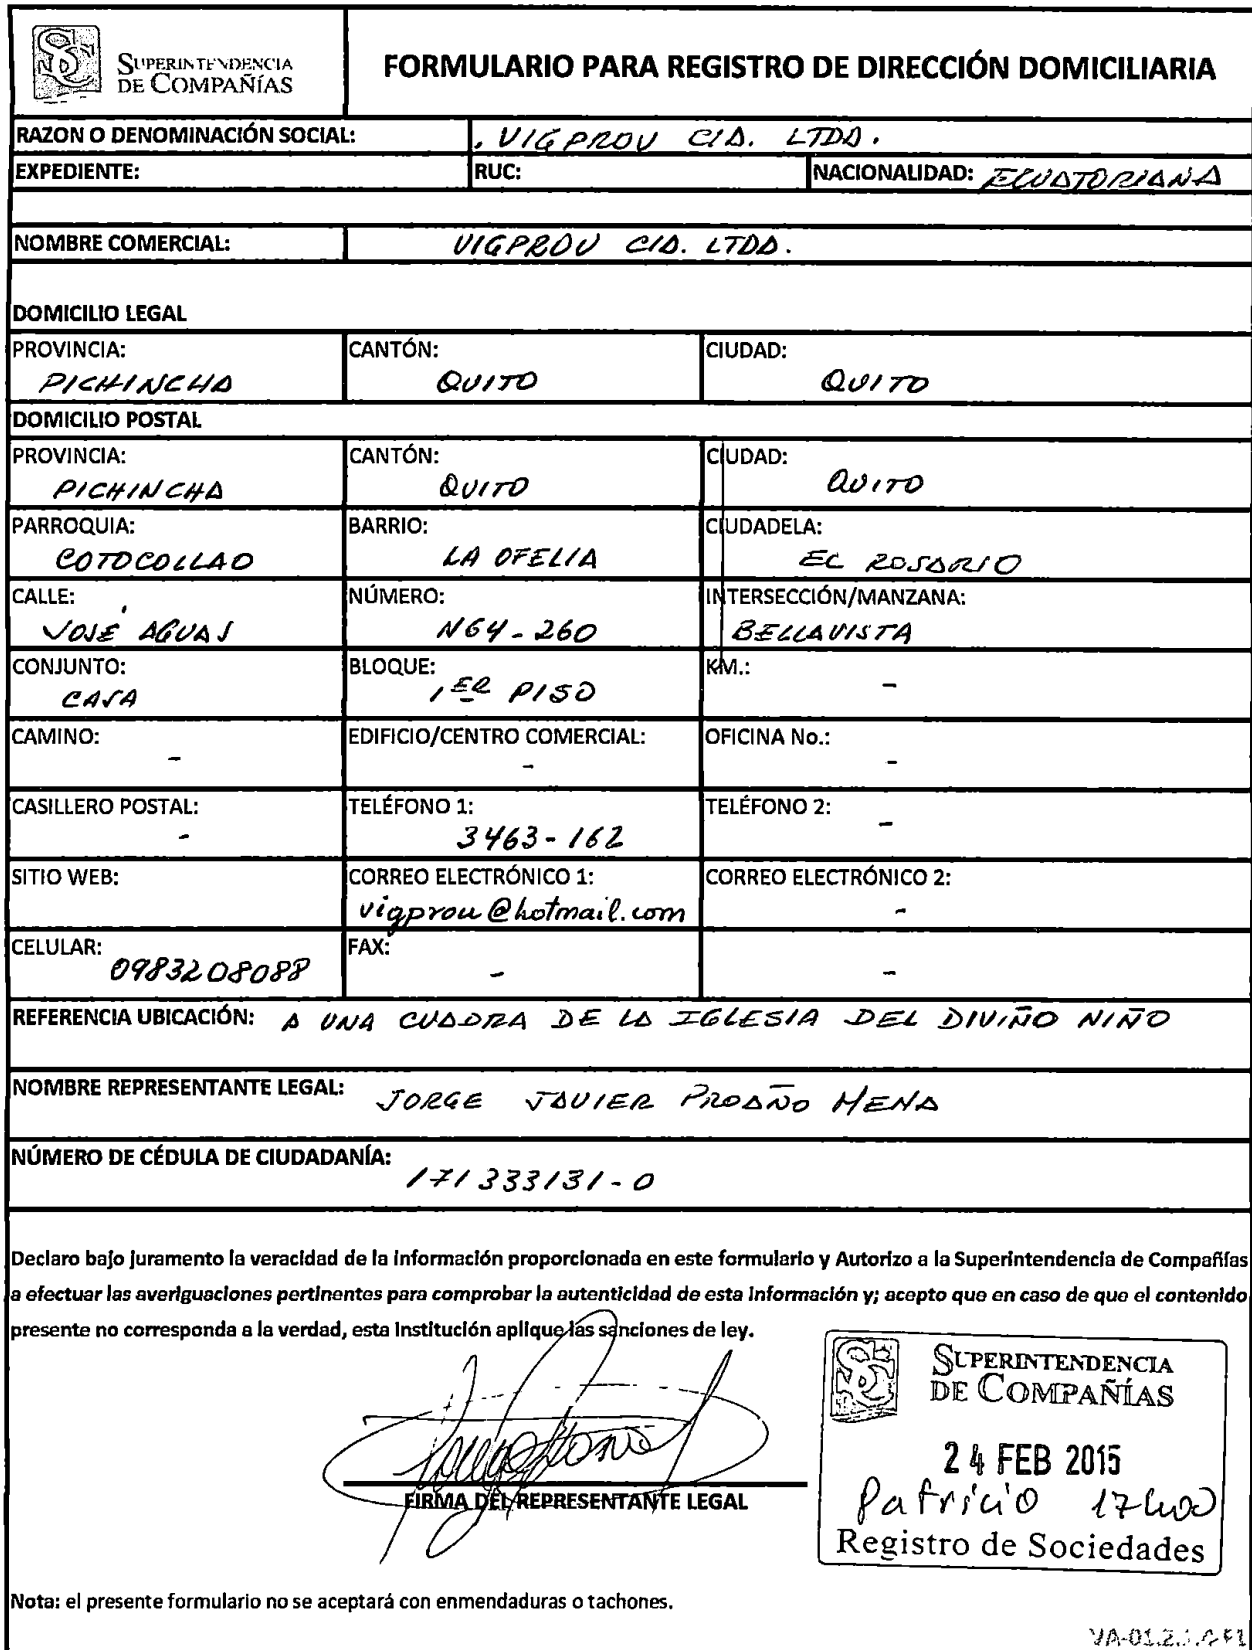 SUPERINTENDENCIA
DE COMPAÑÍAS
FORMULARIO PARA REGISTRO DE DIRECCIÓN DOMICILIARIA
RAZON O DENOMINACIÓN SOCIAL: . VIGPROU CIA. LTDA.
EXPEDIENTE: RUC: NACIONALIDAD: ECUATORIANA
NOMBRE COMERCIAL: VIGPROU CIA. LTDA.
DOMICILIO LEGAL
PROVINCIA: CANTÓN: CIUDAD:
PICHINCHA QUITO QUITO
DOMICILIO POSTAL
PROVINCIA: CANTÓN: CIUDAD:
PICHINCHA QUITO QUITO
PARROQUIA: BARRIO: CIUDADELA:
COTOCOLLAO LA OFELIA EL ROSARIO
CALLE: NÚMERO: INTERSECCIÓN/MANZANA:
JOSÉ AGUAS N64-260 BELLAVISTA
CONJUNTO: BLOQUE: KM.:
CASA 1ER PISO -
CAMINO: EDIFICIO/CENTRO COMERCIAL: OFICINA No.:
- - -
CASILLERO POSTAL: TELÉFONO 1: TELÉFONO 2:
- 3463-162 -
SITIO WEB: CORREO ELECTRÓNICO 1: CORREO ELECTRÓNICO 2:
vigprou@hotmail.com -
CELULAR: 0983208088 FAX: - -
REFERENCIA UBICACIÓN: A UNA CUADRA DE LA IGLESIA DEL DIVIÑO NIÑO
NOMBRE REPRESENTANTE LEGAL: JORGE JAVIER PROAÑO MENA
NÚMERO DE CÉDULA DE CIUDADANÍA: 171333131-0
Declaro bajo juramento la veracidad de la información proporcionada en este formulario y Autorizo a la Superintendencia de Compañías
a efectuar las averiguaciones pertinentes para comprobar la autenticidad de esta información y; acepto que en caso de que el contenido
presente no corresponda a la verdad, esta institución aplique las sanciones de ley.
SUPERINTENDENCIA
DE COMPAÑÍAS
24 FEB 2015
Patricio 17h00
Registro de Sociedades
FIRMA DEL REPRESENTANTE LEGAL
Nota: el presente formulario no se aceptará con enmendaduras o tachones.